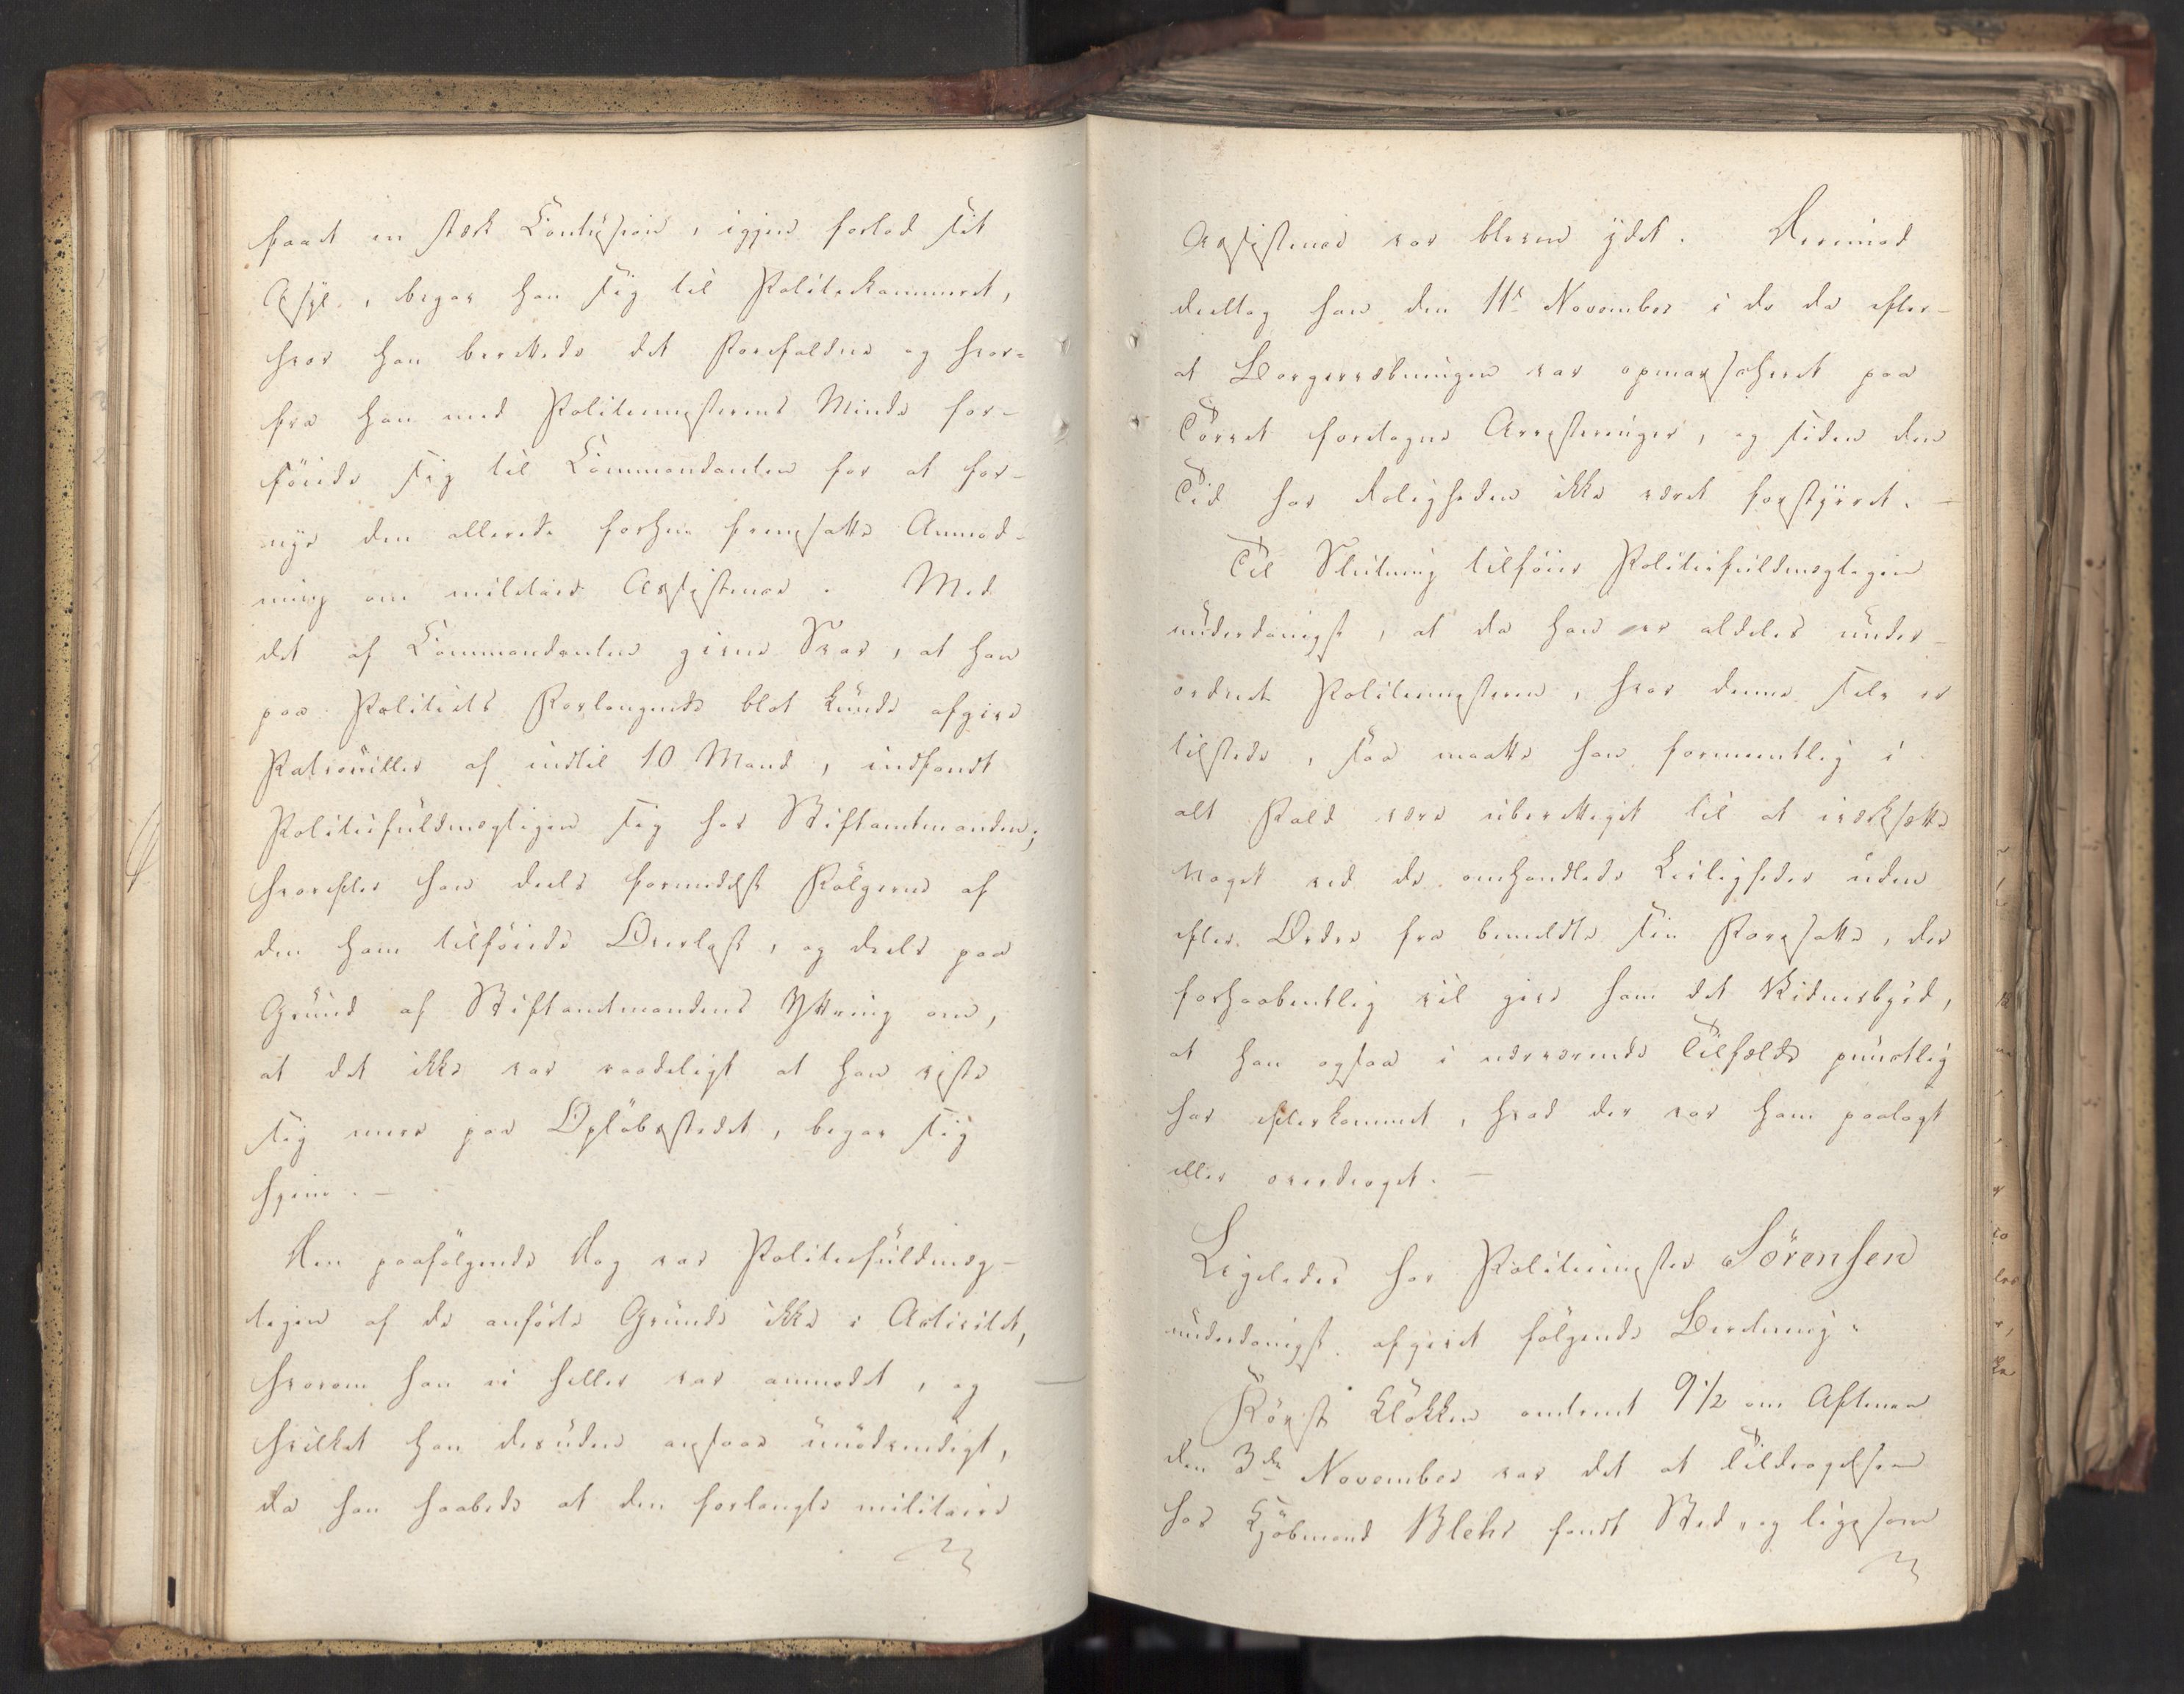 faaet en stærk Contusion, igjen forlod sit
Asyl, begav han sig til Politiekammeret,
hvor han berettede det Forefaldne og hvor-
fra han med Politiemesterens Minde for-
föiede sig til Commandanten for at for-
nye den allerede forhen fremsatte Anmod-
ning om militair Assistence. Med
det af Commandanten givne Svar, at han
paa Politiets Forlangende blot kunde afgive
Patrouiller af indtil 10 Mand, indfandt
Politiefuldmægtigen sig hos Stiftamtmanden;
hvorefter han deels formedelst Fölgerne af
den ham tilföiede Overlast, og deels paa
Grund af Stiftamtmandens Yttring om,
at det ikke var raadeligt at han viste
sig mere paa Oplöbsstedet, begav sig
hjem. —
Den paafölgende Dag var Politiefuldmæg-
tigen af de anförte Grunde ikke i Activitet,
hvorom han ei heller var anmodet, og
hvilket han desuden ansaae unödvendigt,
da han haabede at den forlangte militaire
Assistence var bleven ydet. Derimod
deeltog han den 11te November i de da efter-
at Borgervæbningen var opmarscheret paa
Torvet foretagne Arresteringer, og siden den
Tid har Roligheden ikke været forstyrret. —
Til Slutning tilföier Politiefuldmægtigen
underdanigst, at da han er aldeles under-
ordnet Politiemesteren, hvor denne selv er
tilstede, saa maatte han formeentlig i
alt Fald være uberettiget til at iværksætte
Noget ved de omhandlede Leiligheder uden
efter Ordre fra bemeldte sin Foresatte, der
forhaabentlig vil give ham det Vidnesbyrd,
at han ogsaa i nærværende Tilfælde punctlig
har efterkommet, hvad der var ham paalagt
eller overdraget. —
Ligeledes har Politiemester Sörensen
underdanigst afgivet fölgende Beretning:
Förſt Klokken omtrent 9 1/2 om Aftenen
den 3de November var det at Tildragelsen
hos Kjöbmand Blehr fandt Sted, og ligesom